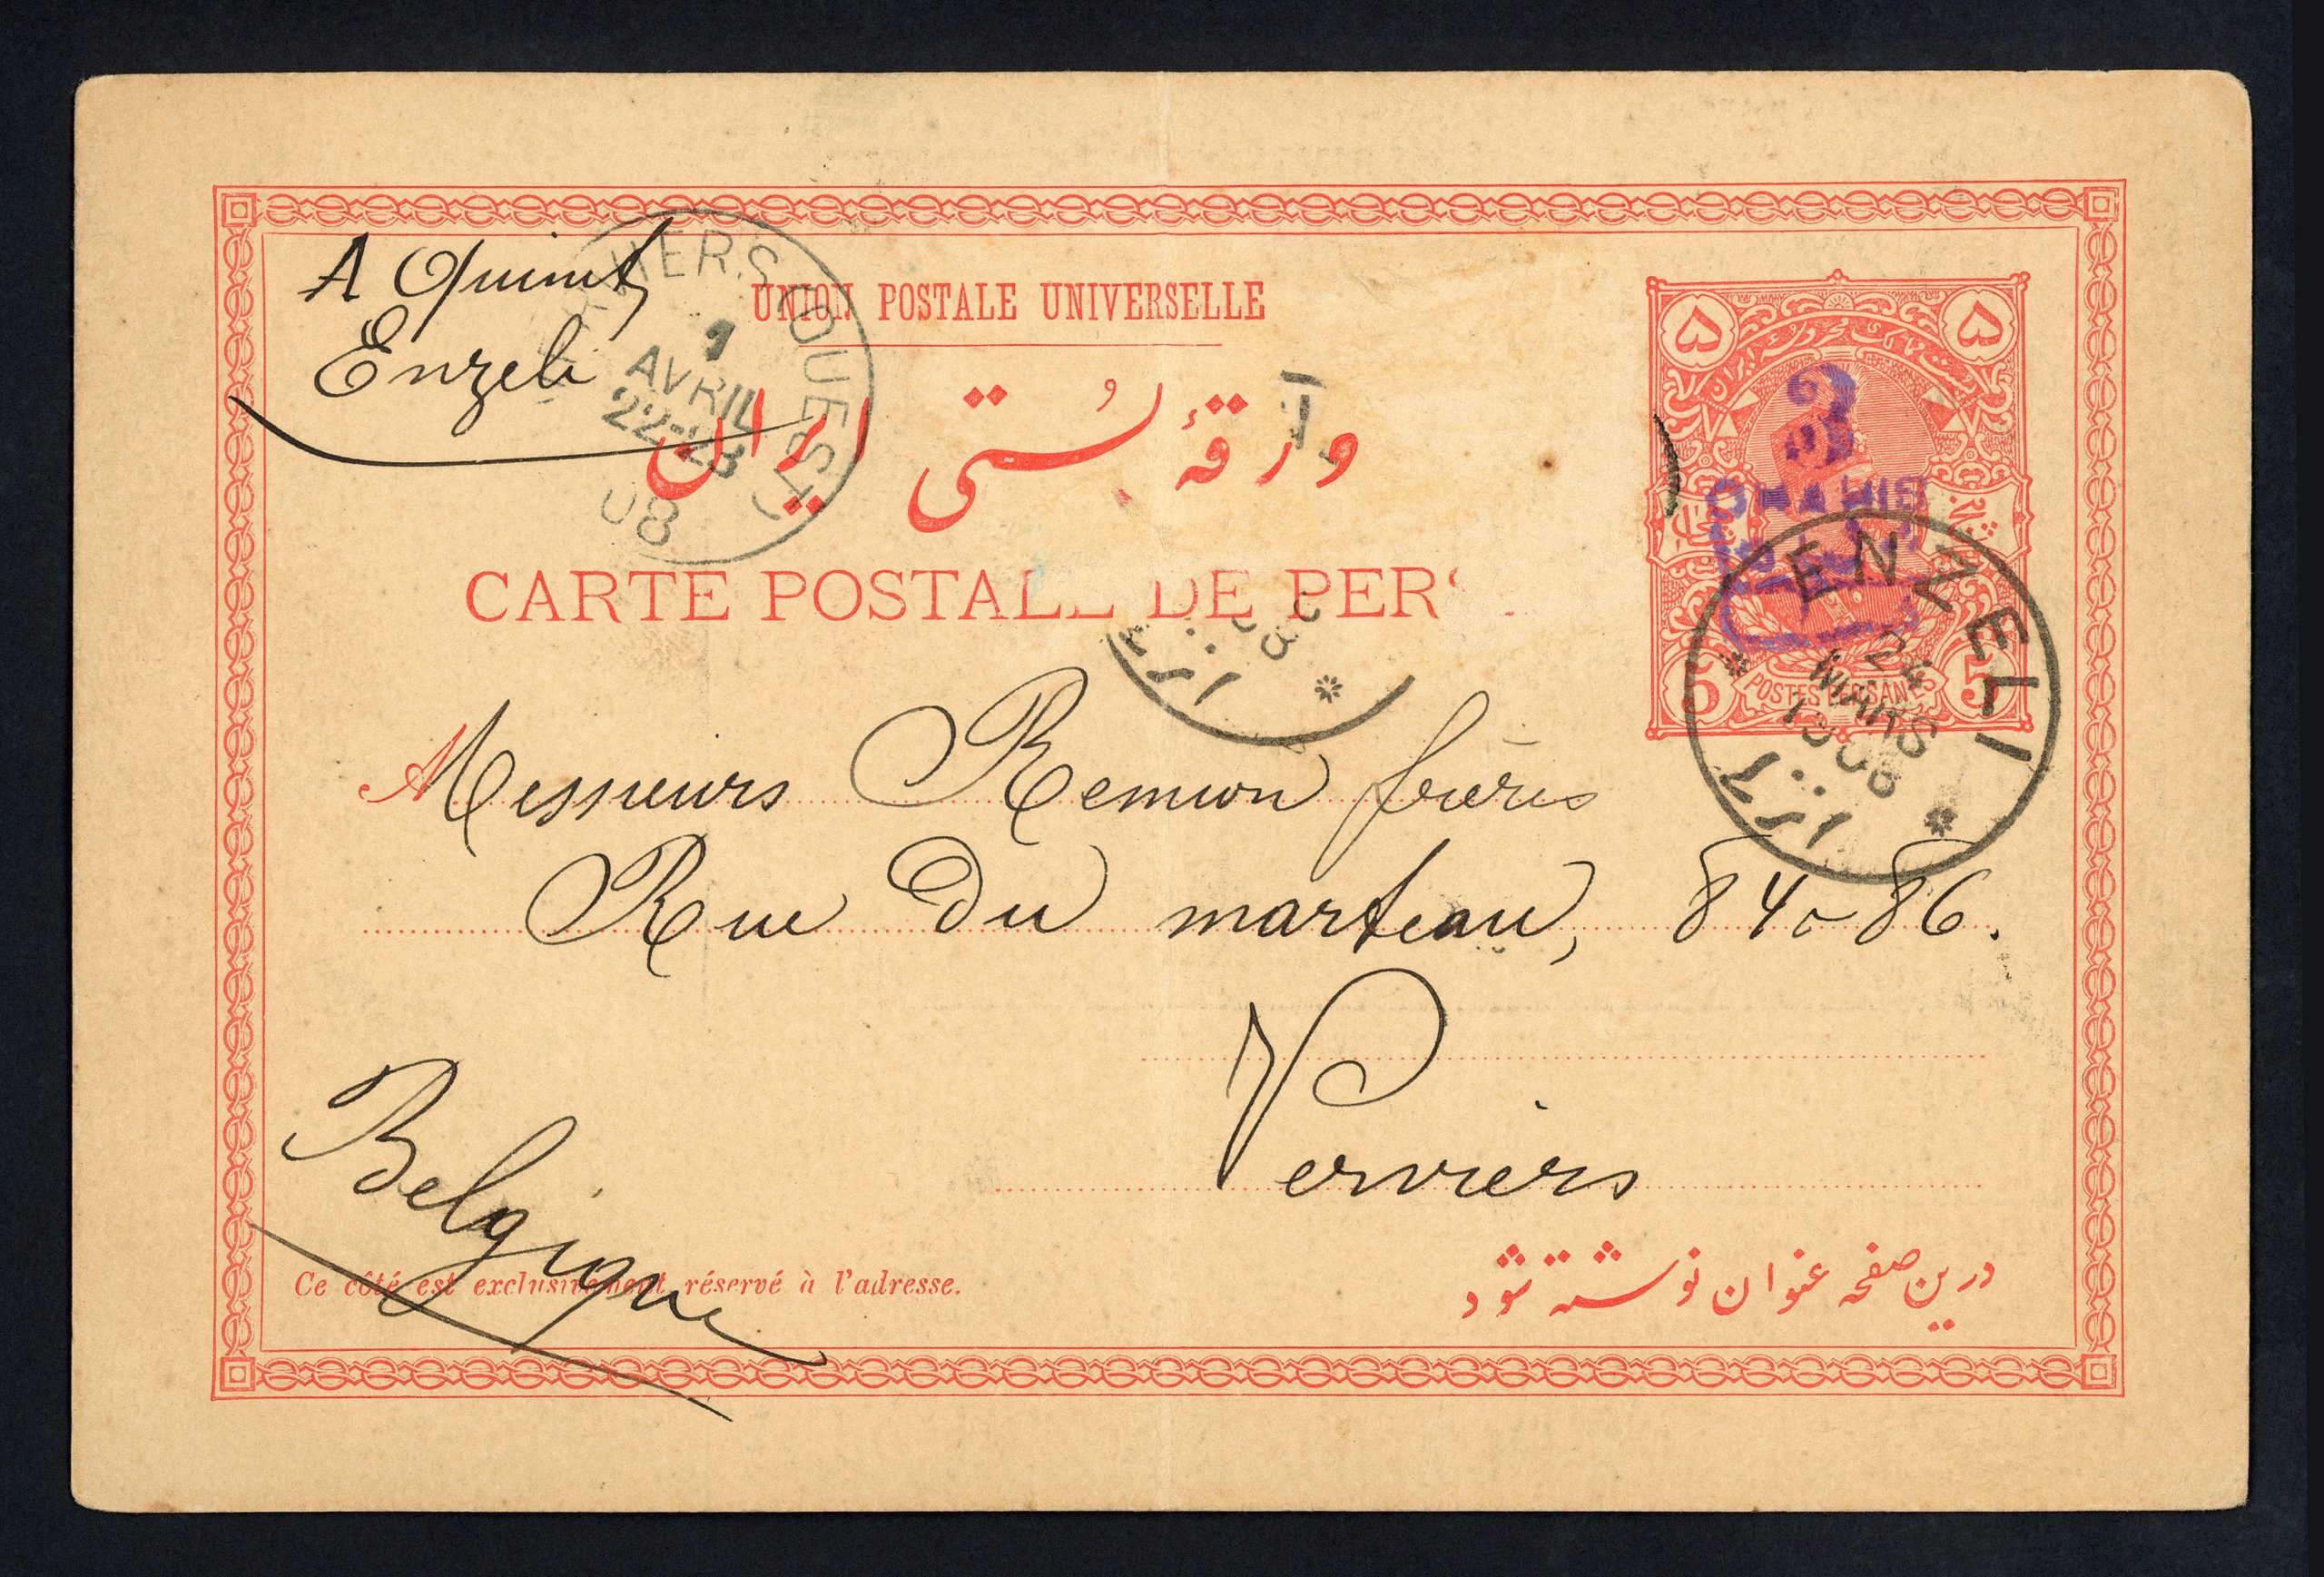 A Quinet
Enzeli
VERVIERS OUEST
1
AVRIL
22-23
08
UNION POSTALE UNIVERSELLE
ورقهٔ پُستی ایران
CARTE POSTALE DE PERS
۵ ۵
3
CHAHIS
5 5
POSTES PERSANES
ENZELI
24
MARS
1908
انزلی
08
انزلی
Messieurs Remion frères
Rue Du marteau, 84-86.
Verviers
Belgique
Ce côté est exclusivement réservé à l'adresse.
درین صفحه عنوان نوشته شود